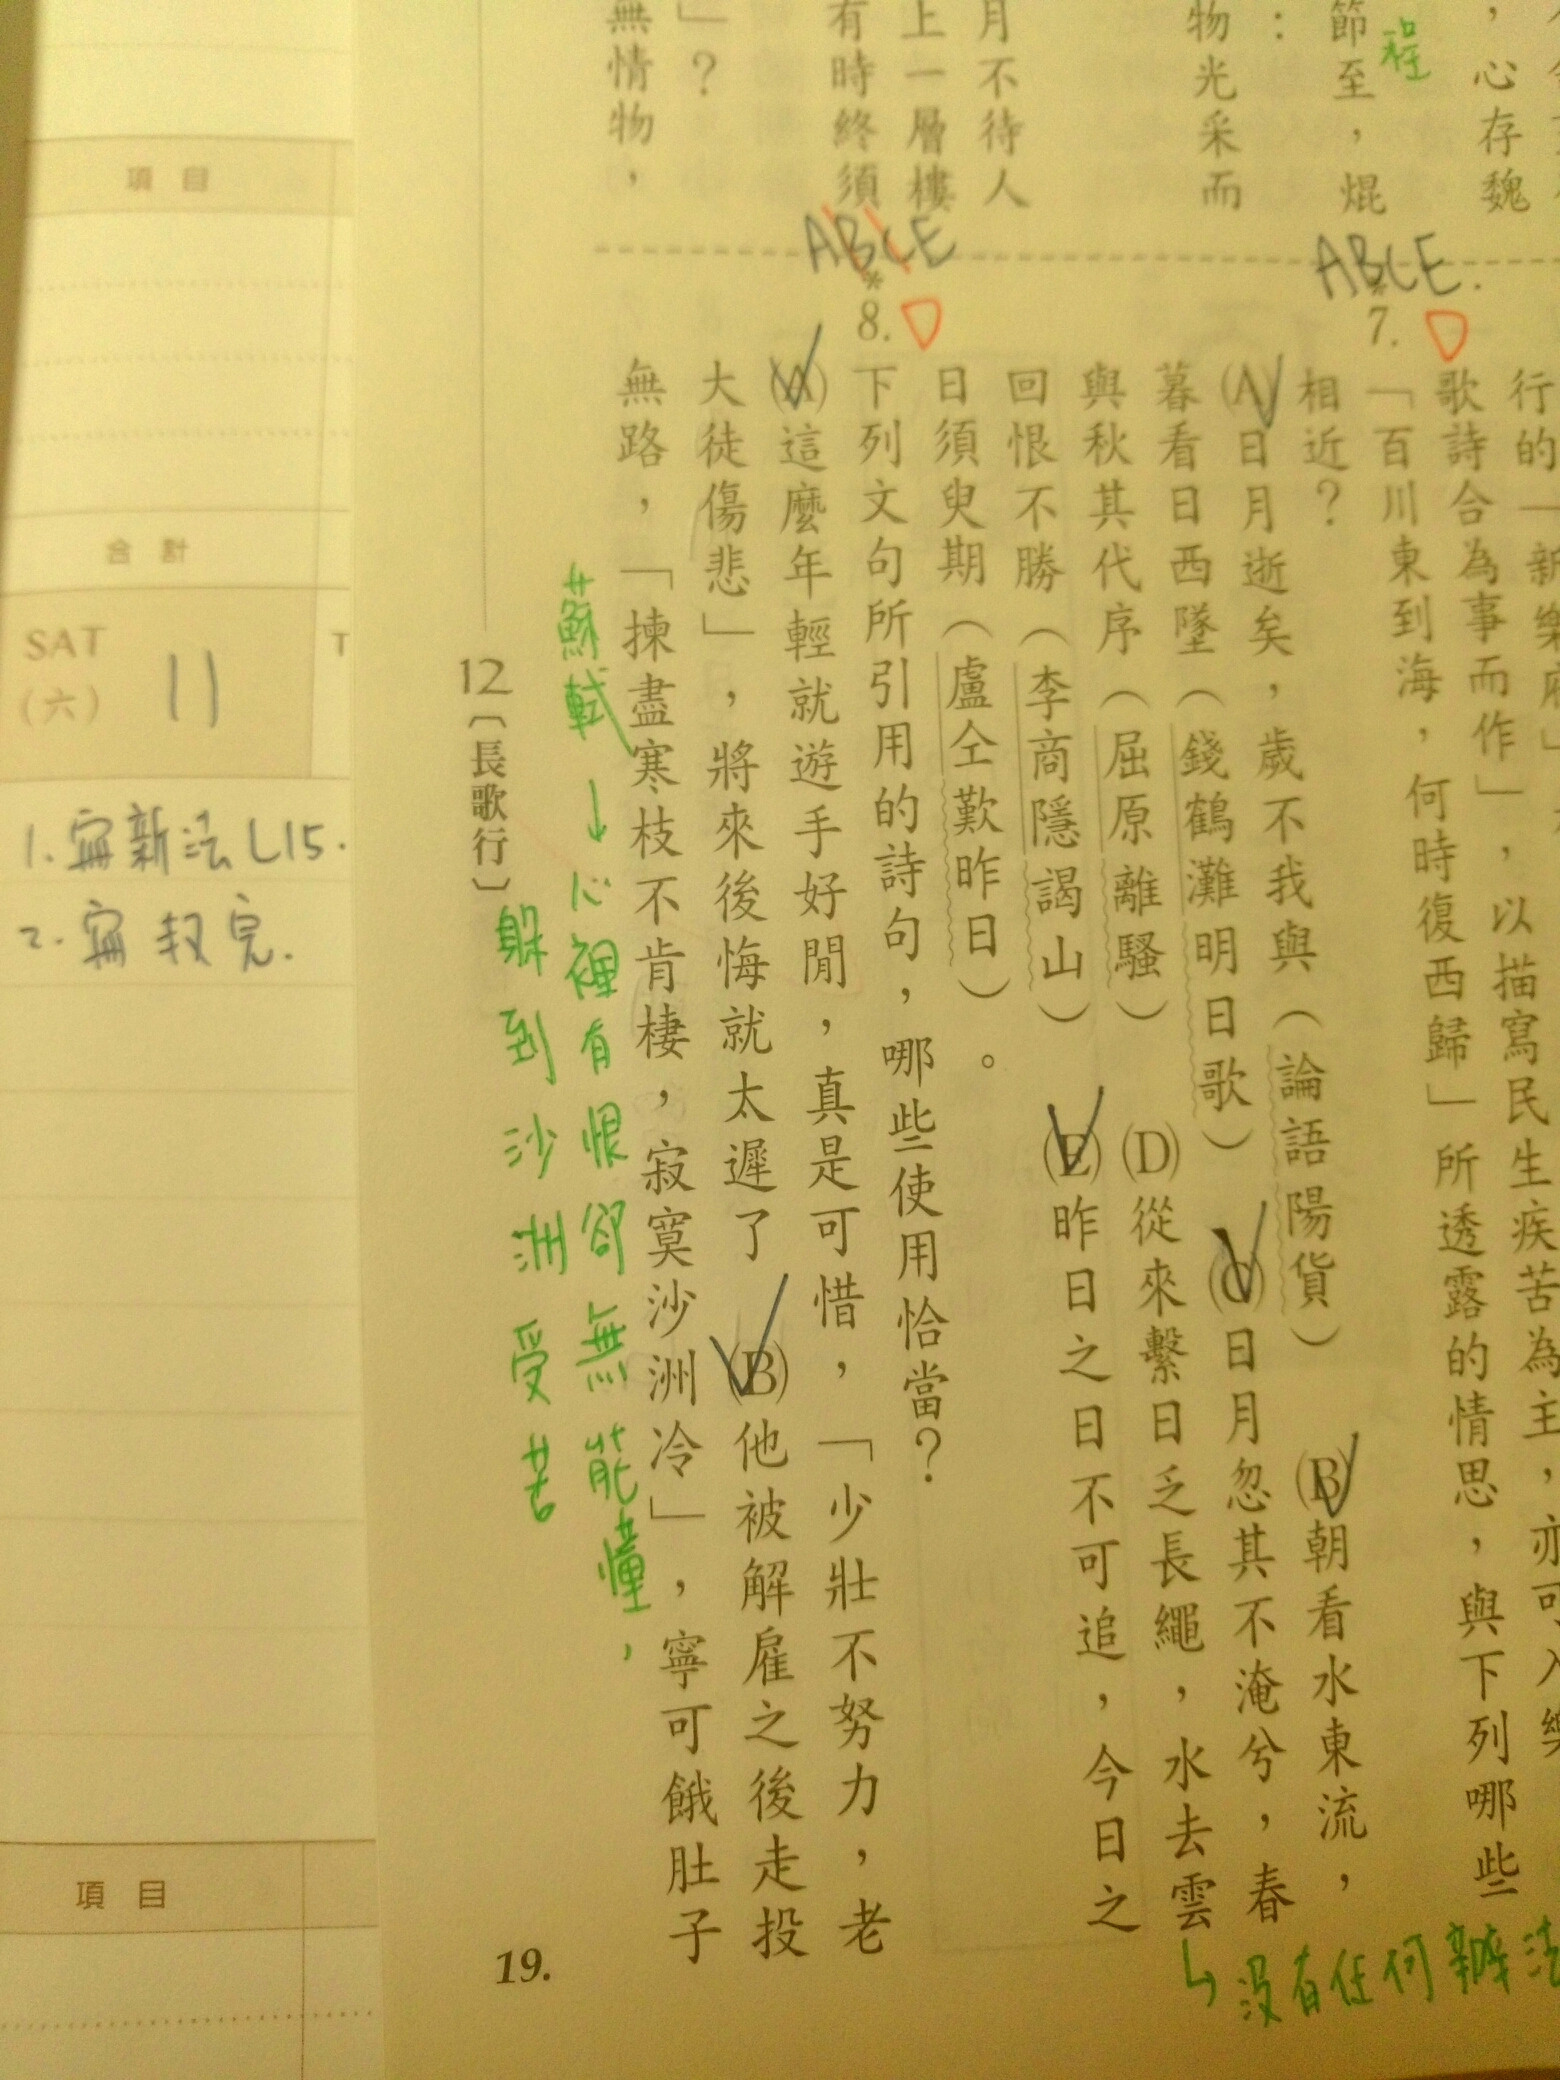 ，心存魏
程
節至，焜
：
物光采而
月不待人
上一層樓
有時終須
」？
無情物，
行的「新樂府」
，以描寫民生疾苦為主，亦可入樂
歌詩合為事而作」
ABCE.
*7.
「百川東到海，何時復西歸」所透露的情思，與下列哪些
相近？
(A)日月逝矣，歲不我與（論語陽貨）
(B)朝看水東流，
暮看日西墜（錢鶴灘明日歌）
(C)日月忽其不淹兮，春
與秋其代序（屈原離騷）
(D)從來繫日乏長繩，水去雲
回恨不勝（李商隱謁山）
(E)昨日之日不可追，今日之
日須臾期（盧仝歎昨日）。
↳沒有任何辦法
ABCE
*8.
下列文句所引用的詩句，哪些使用恰當？
(A)這麼年輕就遊手好閒，真是可惜，「少壯不努力，老
大徒傷悲」，將來後悔就太遲了
(B)他被解雇之後走投
無路，「揀盡寒枝不肯棲，寂寞沙洲冷」，寧可餓肚子
蘇軾→心裡有恨卻無能懂，
躲到沙洲受苦
12〔長歌行〕
19.
項目
合計
SAT
(六)
11
T
1.寫新法L15.
2.寫
完.
項目